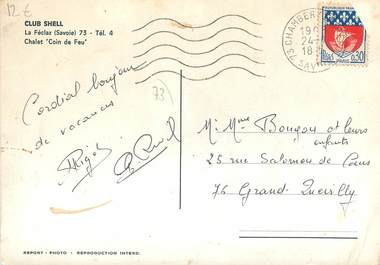 12 €
CLUB SHELL
La Féclaz (Savoie) 73 - Tél. 4
Chalet "Coin de Feu"
73 CHAMBERY
19
24-
18-
SAV
REPUBLIQUE FRANÇAISE
PARIS
0,30
Cordial bonjour
de vacances
73
M. Mme Bougon et leurs
enfants
25 rue Salomon de Caus
76 Grand-Quevilly
REPORT-PHOTO - REPRODUCTION INTERD.